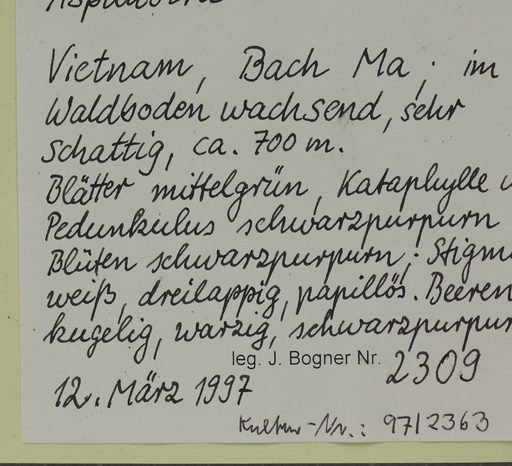 Vietnam, Bach Ma; im
Waldboden wachsend, sehr
schattig, ca. 700 m.
Blätter mittelgrün, Kataphylle
Pedunkulus schwarzpurpurn
Blüten schwarzpurpurn; Stigm
weiß, dreilappig, papillös. Beeren
kugelig, warzig, schwarzpurpur
leg. J. Bogner Nr. 2309
12. März 1997
Kultur-Nr.: 97/2363